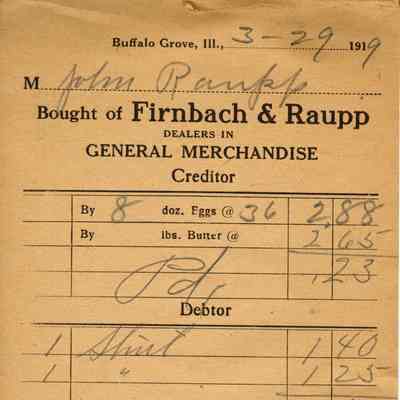 Buffalo Grove, Ill., 3-29 1919
M John Raupp
Bought of Firnbach & Raupp
DEALERS IN
GENERAL MERCHANDISE
Creditor
By 8 doz. Eggs @ 36 2.88
By lbs. Butter @ 2 65
.23
Pd.
Debtor
1 Shirt 1 40
1 " 1 25